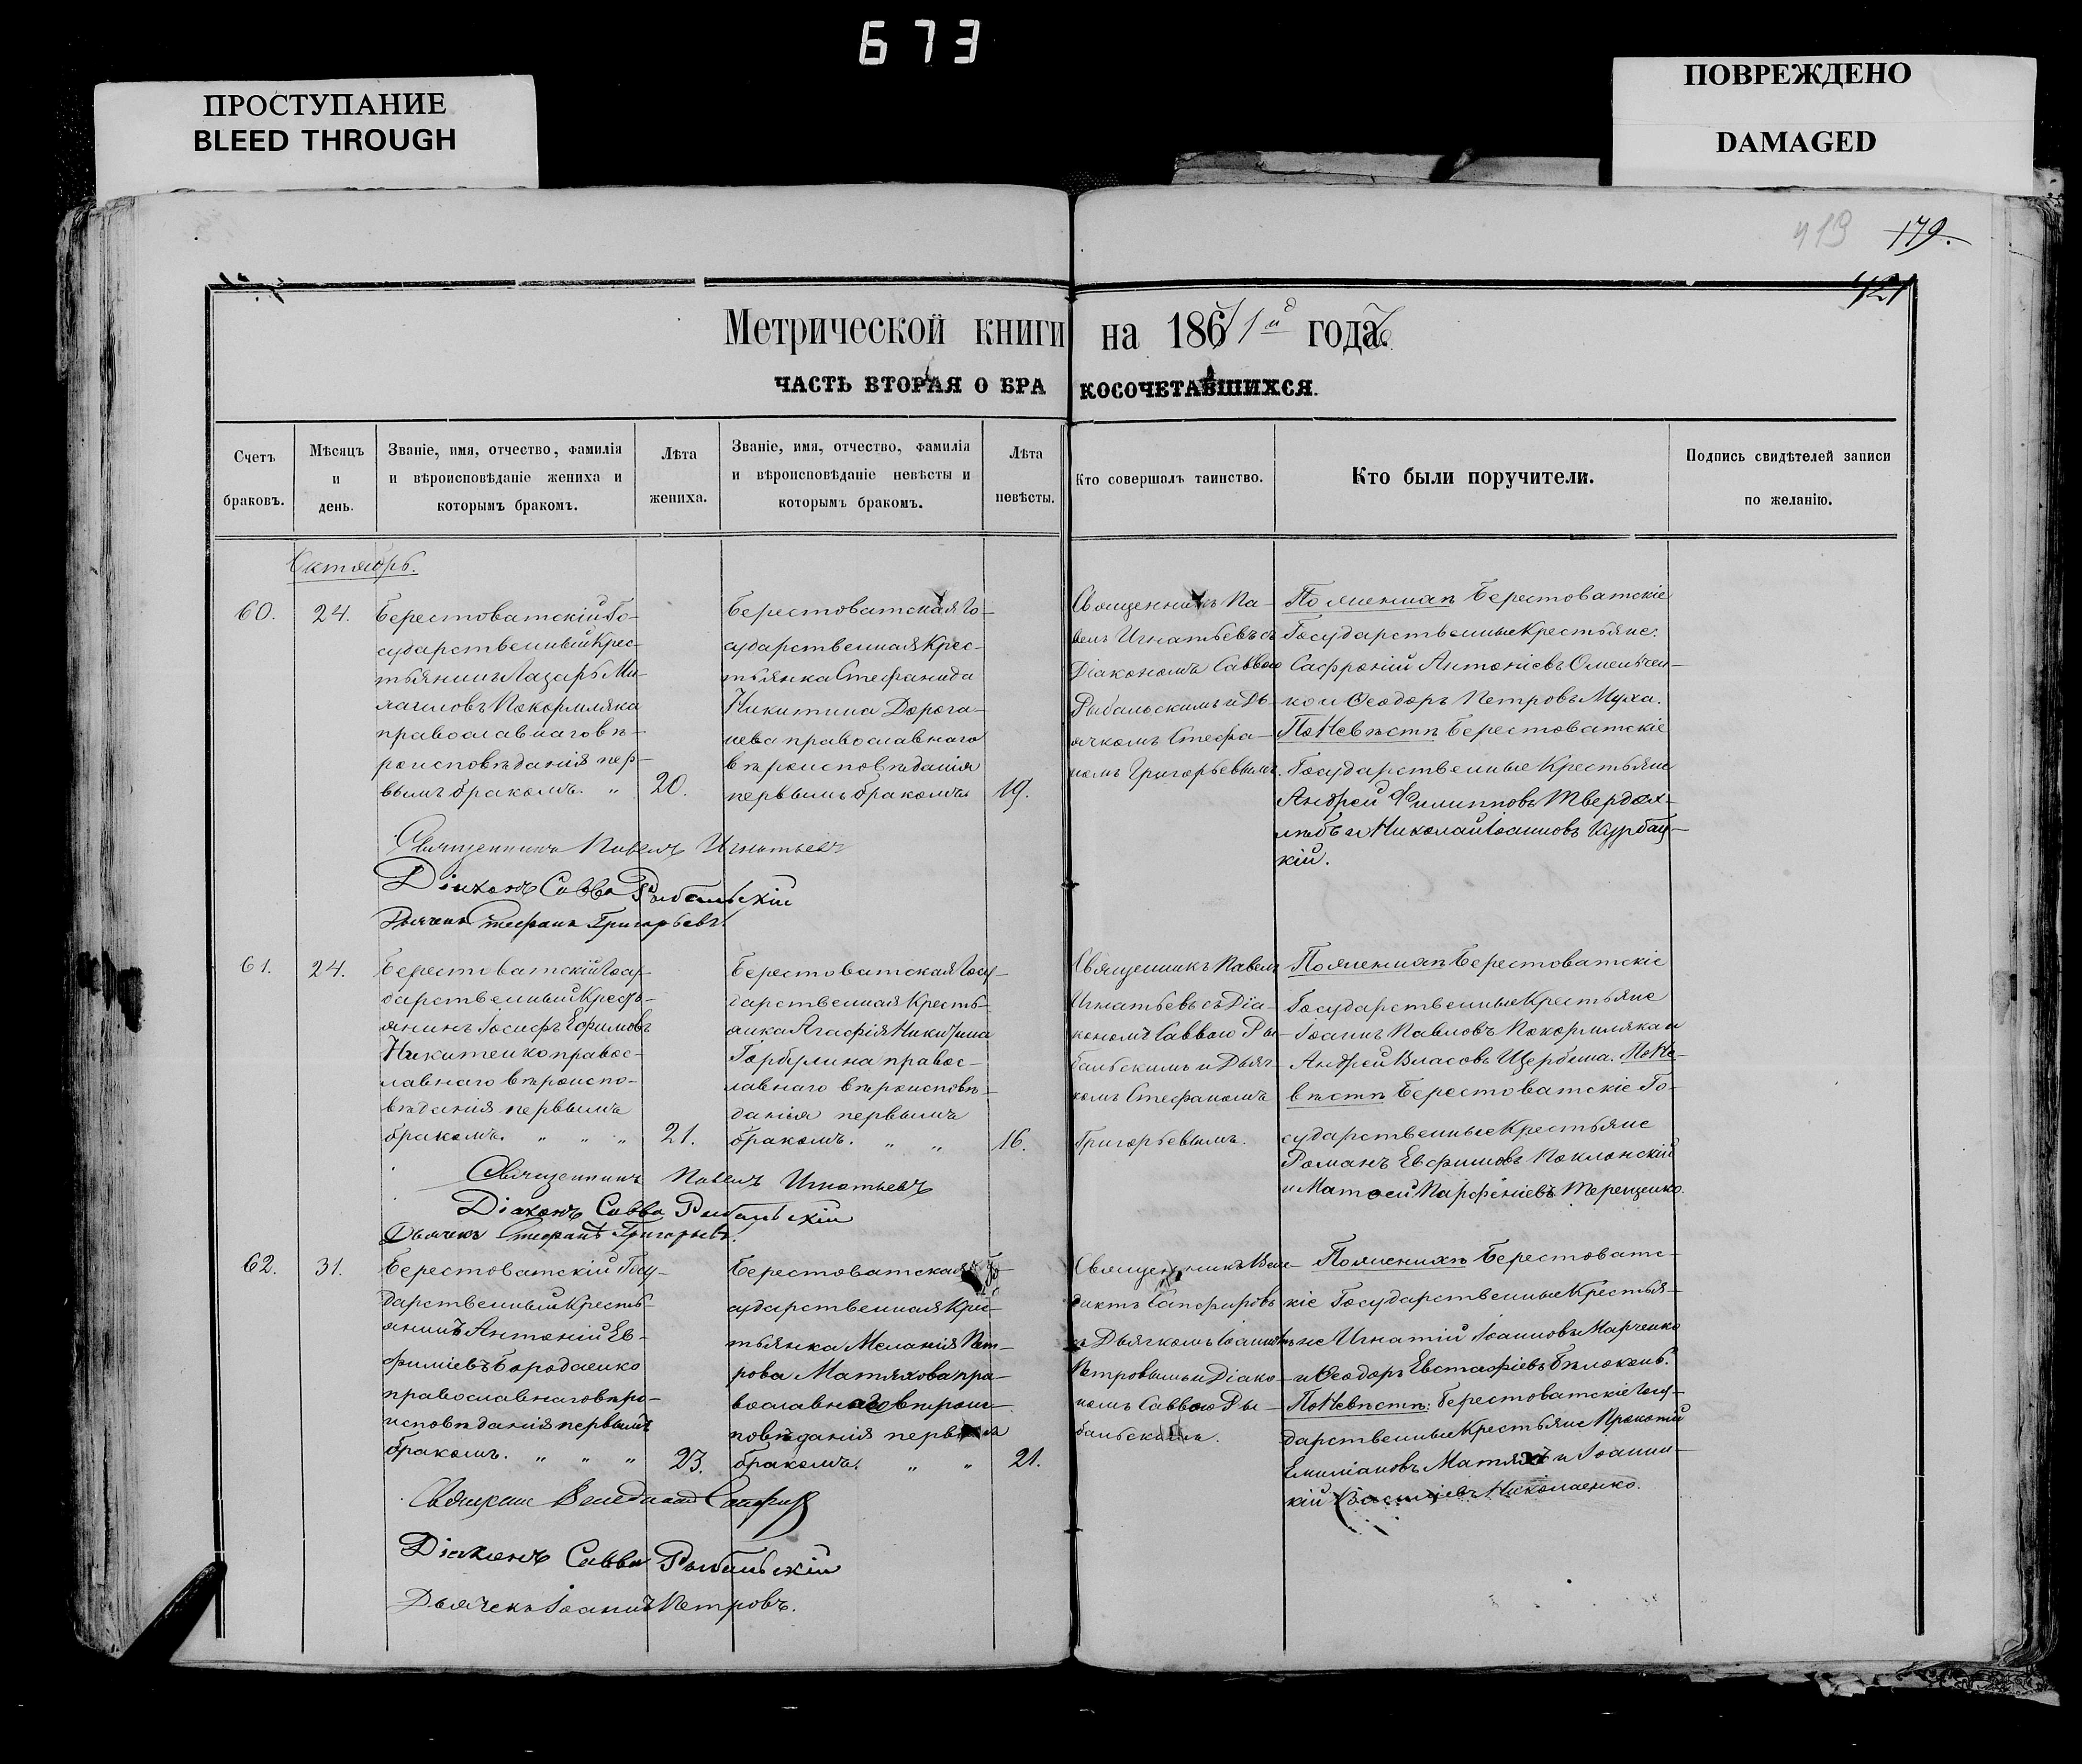 673
ПРОСТУПАНИЕ
BLEED THROUGH
ПОВРЕЖДЕНО
DAMAGED
419 179.
421
Метрической книги на 1861й года.
ЧАСТЬ ВТОРАЯ О БРАКОСОЧЕТАВШИХСЯ.
Счетъ
браковъ.
Мѣсяцъ
и
день.
Званіе, имя, отчество, фамилія
и вѣроисповѣданіе жениха и
которымъ бракомъ.
Лѣта
жениха.
Званіе, имя, отчество, фамилія
и вѣроисповѣданіе невѣсты и
которымъ бракомъ.
Лѣта
невѣсты.
Кто совершалъ таинство.
Кто были поручители.
Подпись свидѣтелей записи
по желанію.
Октябрь.
60.
24.
Берестоватскій Го-
сударственный Крес-
тьянинъ Лазарь Ми-
хаиловъ Покормляка
православнаго вѣ-
роисповѣданія пер-
вымъ бракомъ. "
20.
Берестоватская Го-
сударственная Крес-
тьянка Стефанида
Никитина Дорога-
нева православнаго
вѣроисповѣданія
первымъ бракомъ
19.
Священникъ Па-
велъ Игнатьевъ съ
Діакономъ Саввою
Рыбальскимъ и Дь-
ячкомъ Стефа-
номъ Григорьевымъ.
По женихѣ Берестоватскіе
Государственные Крестьяне:
Сафроній Антоніевъ Омельчен-
ко и Ѳеодоръ Петровъ Муха.
По Невѣстѣ Берестоватскіе
Государственные Крестьяне
Андрей Филипповъ Твердох-
лѣбъ и Николай Іоанновъ Курбац-
кій.
Священникъ Павелъ Игнатьевъ
Діаконъ Савва Рыбальскій
Дьячекъ Стефанъ Григорьевъ.
61.
24.
Берестоватскій Госу-
дарственный Кресть-
янинъ Іосифъ Ефимовъ
Никитенко правос-
лавнаго вѣроиспо-
вѣданія первымъ
бракомъ. " " "
21.
Берестоватская Госу-
дарственная Кресть-
янка Агафія Никитина
Горбулина правос-
лавнаго вѣроисповѣ-
данія первымъ
бракомъ. " "
16.
Священникъ Павелъ
Игнатьевъ съ Діа-
кономъ Саввою Ры-
бальскимъ и Дьяч-
комъ Стефаномъ
Григорьевымъ.
По женихѣ Берестоватскіе
Государственные Крестьяне
Іоаннъ Павловъ Покормляка и
Андрей Власовъ Щербина. По Не-
вѣстѣ Берестоватскіе Го-
сударственные Крестьяне
Романъ Евфимовъ Поклонскій
и Матѳей Парфеніевъ Терещенко.
Священникъ Павелъ Игнатьевъ
Діаконъ Савва Рыбальскій
Дьячекъ Стефанъ Григорьевъ.
62.
31.
Берестоватскій Госу-
дарственный Кресть-
янинъ Антоній Ев-
фиміевъ Бородаенко
православнаго вѣро-
исповѣданія первымъ
бракомъ. " " "
23.
Берестоватская Го-
сударственная Крес-
тьянка Меланія Пет-
рова Матяхова пра-
вославнаго вѣроис-
повѣданія первымъ
бракомъ. " "
21.
Священникъ Вене-
диктъ Сапфировъ
съ Дьячкомъ Іоанномъ
Петровымъ и Діако-
номъ Саввою Ры-
бальскимъ.
По женихѣ Берестоватс-
кіе Государственные Крестья-
не Игнатій Іоанновъ Марченко
и Ѳеодоръ Евстафіевъ Бѣлоконь.
По Невѣстѣ: Берестоватскіе Госу-
дарственные Крестьяне Прокопій
Емиліановъ Матяхъ и Іоанни-
кій Василіевъ Николаенко.
Священникъ Венедиктъ Сапфировъ
Діаконъ Савва Рыбальскій
Дьячекъ Іоаннъ Петровъ.